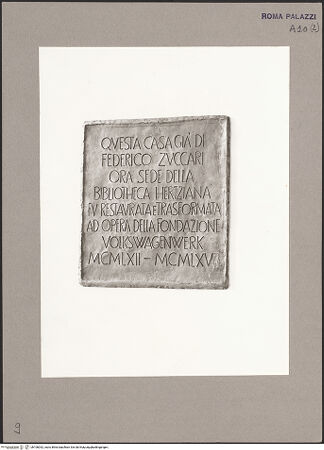 ROMA PALAZZI
A20 (2)
QVESTA CASA GIÀ DI
FEDERICO ZVCCARI
ORA SEDE DELLA
BIBLIOTHECA HERTZIANA
FV RESTAVRATA E TRASFORMATA
AD OPERA DELLA FONDAZIONE
VOLKSWAGENWERK
MCMLXII - MCMLXV
9